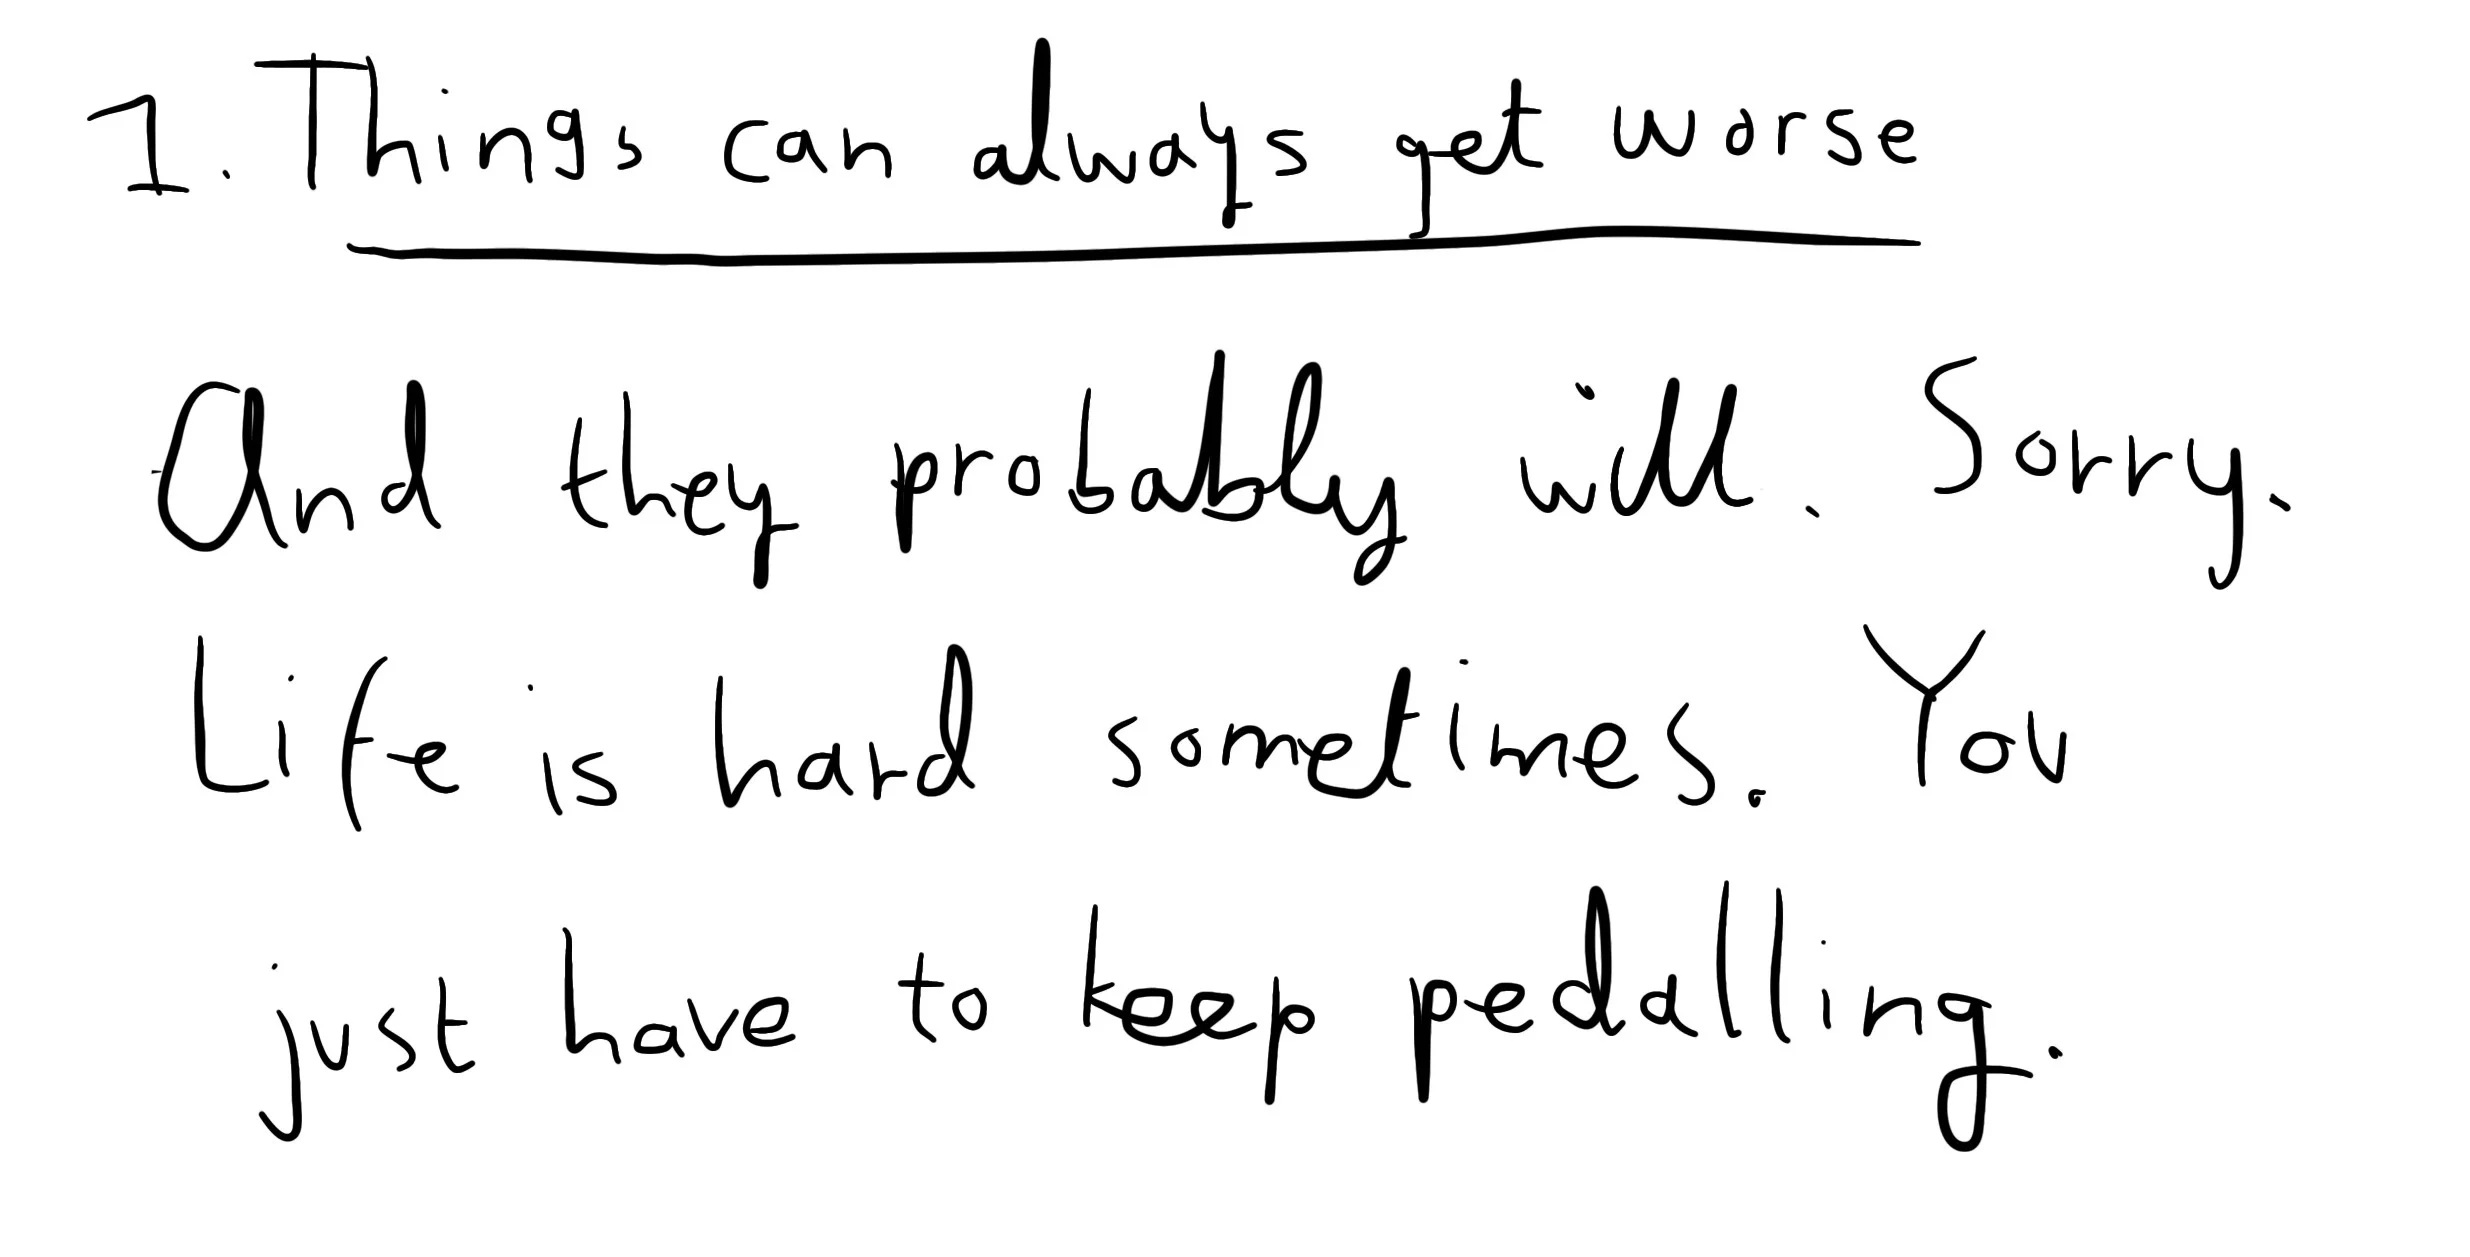 1. Things can always get worse
And they probably will. Sorry.
Life is hard sometimes. You
just have to keep pedalling.